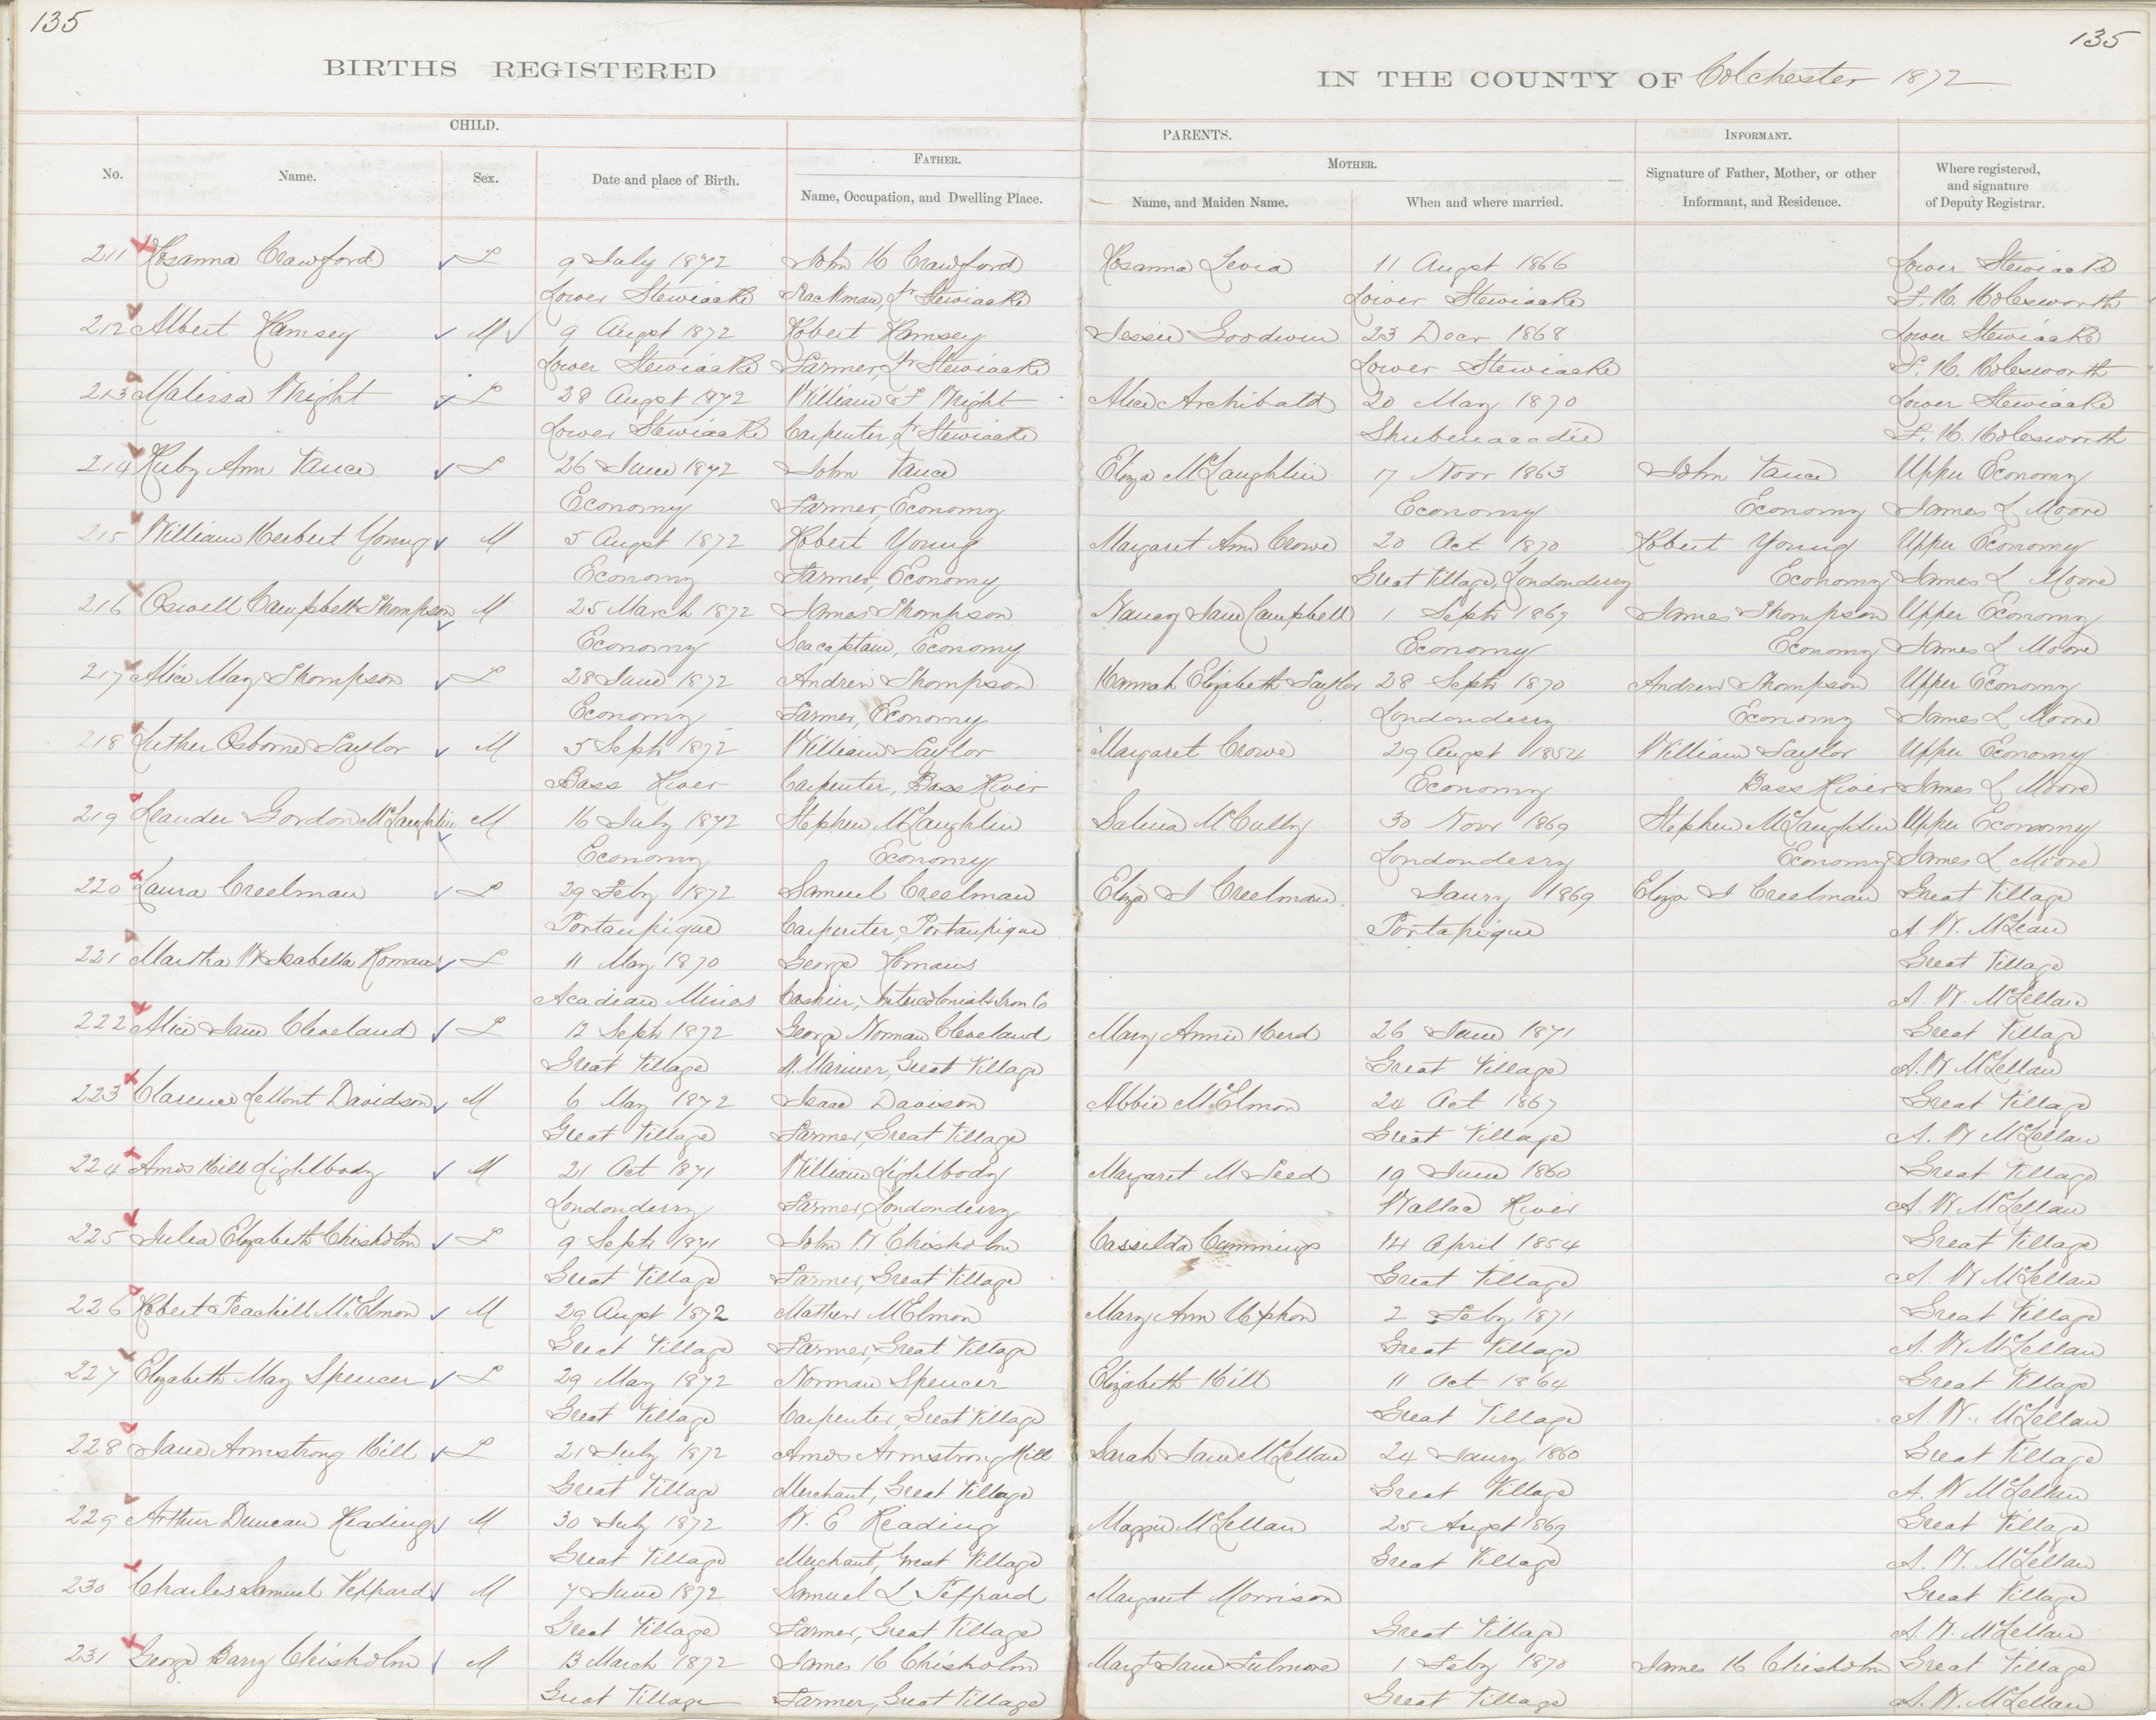 135
135
BIRTHS REGISTERED
IN THE COUNTY OF Colchester 1872
CHILD.
PARENTS.
INFORMANT.
No.
Name.
Sex.
Date and place of Birth.
FATHER.
Name, Occupation, and Dwelling Place.
MOTHER.
Name, and Maiden Name.
When and where married.
Signature of Father, Mother, or other
Informant, and Residence.
Where registered,
and signature
of Deputy Registrar.
211 Rosanna Crawford F 9 July 1872 John H Crawford Rosanna Levia 11 Augst 1866 Lower Stewiacke
Lower Stewiacke Trackman, Lr Stewiacke Lower Stewiacke F. H. Holesworth
212 Albert Ramsey M 9 Augst 1872 Robert Ramsey Jessie Goodwin 23 Decr 1868 Lower Stewiacke
Lower Stewiacke Farmer, Lr Stewiacke Lower Stewiacke F. H. Holesworth
213 Malissa Wright F 28 Augst 1872 William F Wright Alice Archibald 20 May 1870 Lower Stewiacke
Lower Stewiacke Carpenter, Lr Stewiacke Shubenacadie F. H. Holesworth
214 Ruby Ann Vance F 26 June 1872 John Vance Eliza McLaughlin 17 Novr 1863 John Vance Upper Economy
Economy Farmer, Economy Economy Economy James L Moore
215 William Herbert Young M 5 Augst 1872 Robert Young Margaret Ann Crowe 20 Oct 1870 Robert Young Upper Economy
Economy Farmer, Economy Great Village, Londonderry Economy James L Moore
216 Oswell Campbell Thompson M 25 March 1872 James Thompson Nancy Jane Campbell 1 Septr 1869 James Thompson Upper Economy
Economy Seacaptain, Economy Economy Economy James L Moore
217 Alice May Thompson F 28 June 1872 Andrew Thompson Hannah Elizabeth Taylor 28 Septr 1870 Andrew Thompson Upper Economy
Economy Farmer, Economy Londonderry Economy James L Moore
218 Luther Osborne Taylor M 5 Septr 1872 William Taylor Margaret Crowe 29 Augst 1854 William Taylor Upper Economy
Bass River Carpenter, Bass River Economy Bass River James L Moore
219 Leander Gordon McLaughlin M 16 July 1872 Stephen McLaughlin Salina McCully 30 Novr 1869 Stephen McLaughlin Upper Economy
Economy Economy Londonderry Economy James L Moore
220 Laura Creelman F 29 Feby 1872 Samuel Creelman Eliza J Creelman Jany 1869 Eliza J Creelman Great Village
Portaupique Carpenter, Portaupique Portapique A. W. McLean
221 Martha W Isabella Romans F 11 May 1870 George Romans Great Village
Acadian Mines Cashier, Intercolonial Iron Co A. W. McLellan
222 Alice Jane Cleveland F 12 Septr 1872 George Norman Cleveland Mary Annie Herd 26 June 1871 Great Village
Great Village M. Mariner, Great Village Great Village A. W McLellan
223 Clarence LeMont Davidson M 6 May 1872 Isaac Davison Abbie McElmon 24 Oct 1867 Great Village
Great Village Farmer, Great Village Great Village A. W McLellan
224 Amos Hill Lightbody M 21 Oct 1871 William Lightbody Margaret M Teed 19 June 1860 Great Village
Londonderry Farmer, Londonderry Wallace River A. W McLellan
225 Julia Elizabeth Chisholm F 9 Septr 1871 John W Chisholm Cassilda Cummings 14 April 1854 Great Village
Great Village Farmer, Great Village Great Village A. W McLellan
226 Robert McElmon M 29 Augst 1872 Mathew McElmon Mary Ann 2 Feby 1871 Great Village
Great Village Farmer, Great Village Great Village A. W McLellan
227 Elizabeth May Spencer F 29 May 1872 Norman Spencer Elizabeth Hill 11 Oct 1864 Great Village
Great Village Carpenter, Great Village Great Village A. W. McLellan
228 Jane Armstrong Hill F 21 July 1872 Amos Armstrong Hill Sarah Jane McLellan 24 Jany 1860 Great Village
Great Village Merchant, Great Village Great Village A. W McLellan
229 Arthur Duncan Reading M 30 July 1872 W. E Reading Maggie McLellan 25 Augst 1869 Great Village
Great Village Merchant, Great Village Great Village A. W. McLellan
230 Charles Samuel Peppard M 7 June 1872 Samuel L Peppard Margaret Morrison Great Village
Great Village Farmer, Great Village Great Village A. W. McLellan
231 George Barry Chisholm M 13 March 1872 James H Chisholm Margt Jane Fulmore 1 Feby 1870 James H Chisholm Great Village
Great Village Farmer, Great Village Great Village A. W. McLellan